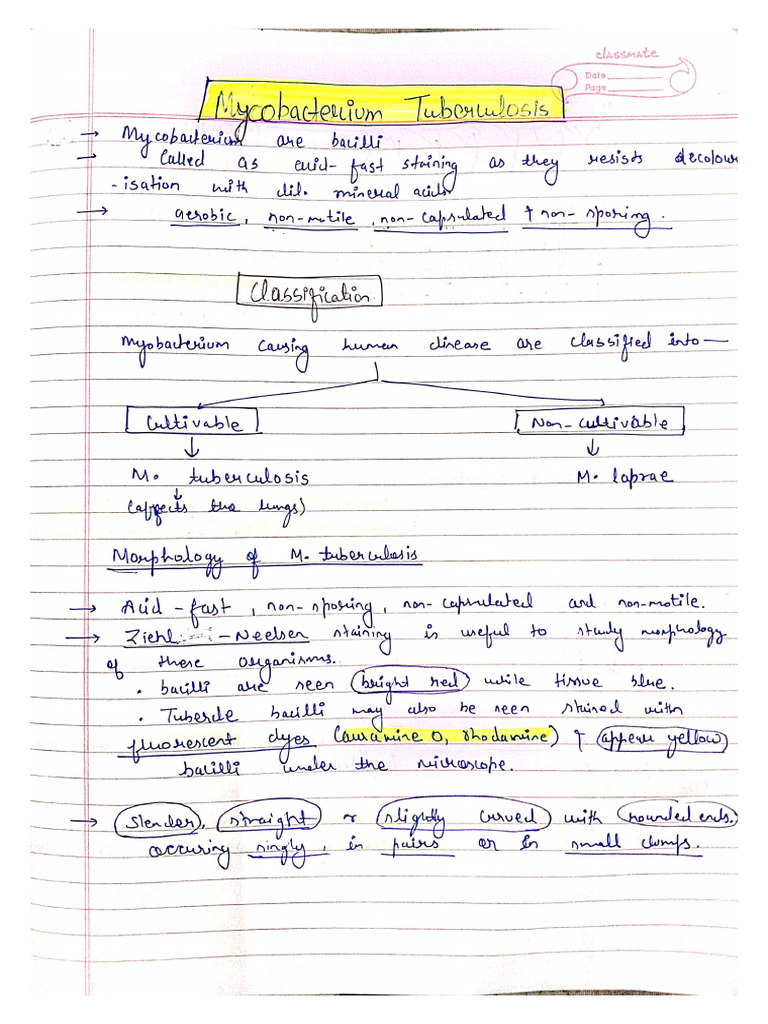 classmate
Date
Page
Mycobacterium Tuberculosis
→ Mycobacterium are bacilli
→ Called as acid-fast staining as they resists decolour
-isation with dil. mineral acids
→ aerobic, non-motile, non-capsulated & non-sporing.
Classification
Myobacterium causing human disease are classified into —
Cultivable Non-cultivable
↓ ↓
M. tuberculosis M. laprae
↓
(affects the lungs)
Morphology of M. tuberculosis
→ Acid-fast, non-sporing, non-capsulated and non-motile.
→ Ziehl - Neelsen staining is useful to study morphology
of these organisms.
• bacilli are seen bright red while tissue blue.
• Tubercle bacilli may also be seen stained with
fluorescent dyes (auramine O, rhodamine) & appear yellow
bacilli under the microscope.
→ Slender, straight or slightly curved with rounded ends.
occuring singly, in pairs or in small clumps.